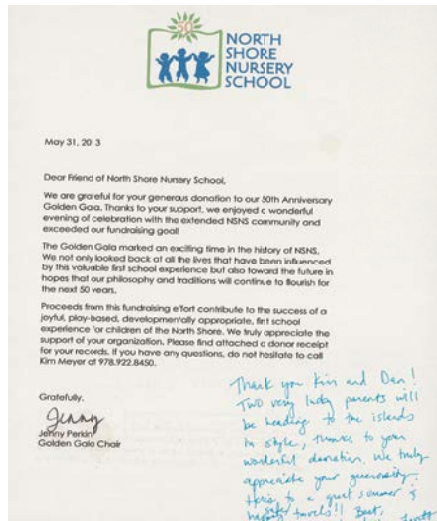 50
NORTH
SHORE
NURSERY
SCHOOL
May 31, 20 3
Dear Friend of North Shore Nursery School,
We are grateful for your generous donation to our 50th Anniversary
Golden Gaa. Thanks to your support, we enjoyed c wonderful
evening of celebration with the extended NSNS community and
exceeded our fundraising goal!
The Golden Gala marked an exciting time in the history of NSNS.
We not only looked back at all the lives that have been influenced
by this valuable first school experience but also toward the future in
hopes that our philosophy and traditions will continue to flourish for
the next 50 years.
Proceeds from this fundraising effort contribute to the success of a
joyful, play-based, developmentally appropriate, first school
experience for children of the North Shore. We truly appreciate the
support of your organization. Please find attached a donor receipt
for your records. If you have any questions, do not hesitate to call
Kim Meyer at 978.922.8450.
Gratefully,
Jenny
Jenny Perkin
Golden Gala Chair
Thank you Kim and Dan!
TWO very lucky parents will
be heading to the islands
in style, thanks to your
wonderful donation. We truly
appreciate your generosity.
Here's to a great summer &
safe
happy travels!! Best,